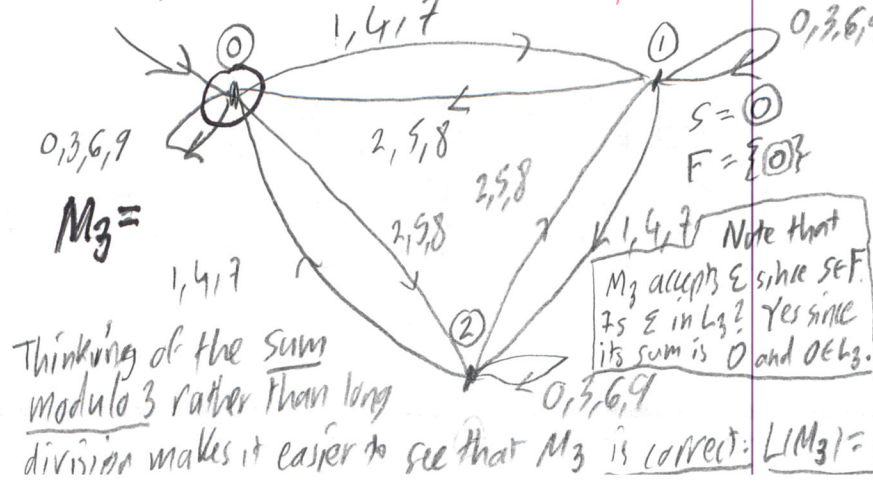 0
1,4,7
1
0,3,6,
0,3,6,9
2,5,8
S = 0
F = {0}
M3 =
2,5,8
2,5,8
1,4,7
1,4,7
2
0,3,6,9
Note that
M3 accepts ε since S∈F.
Is ε in L3? Yes since
its sum is 0 and 0∈L3.
Thinking of the sum
modulo 3 rather than long
division makes it easier to see that M3 is correct: L(M3) =